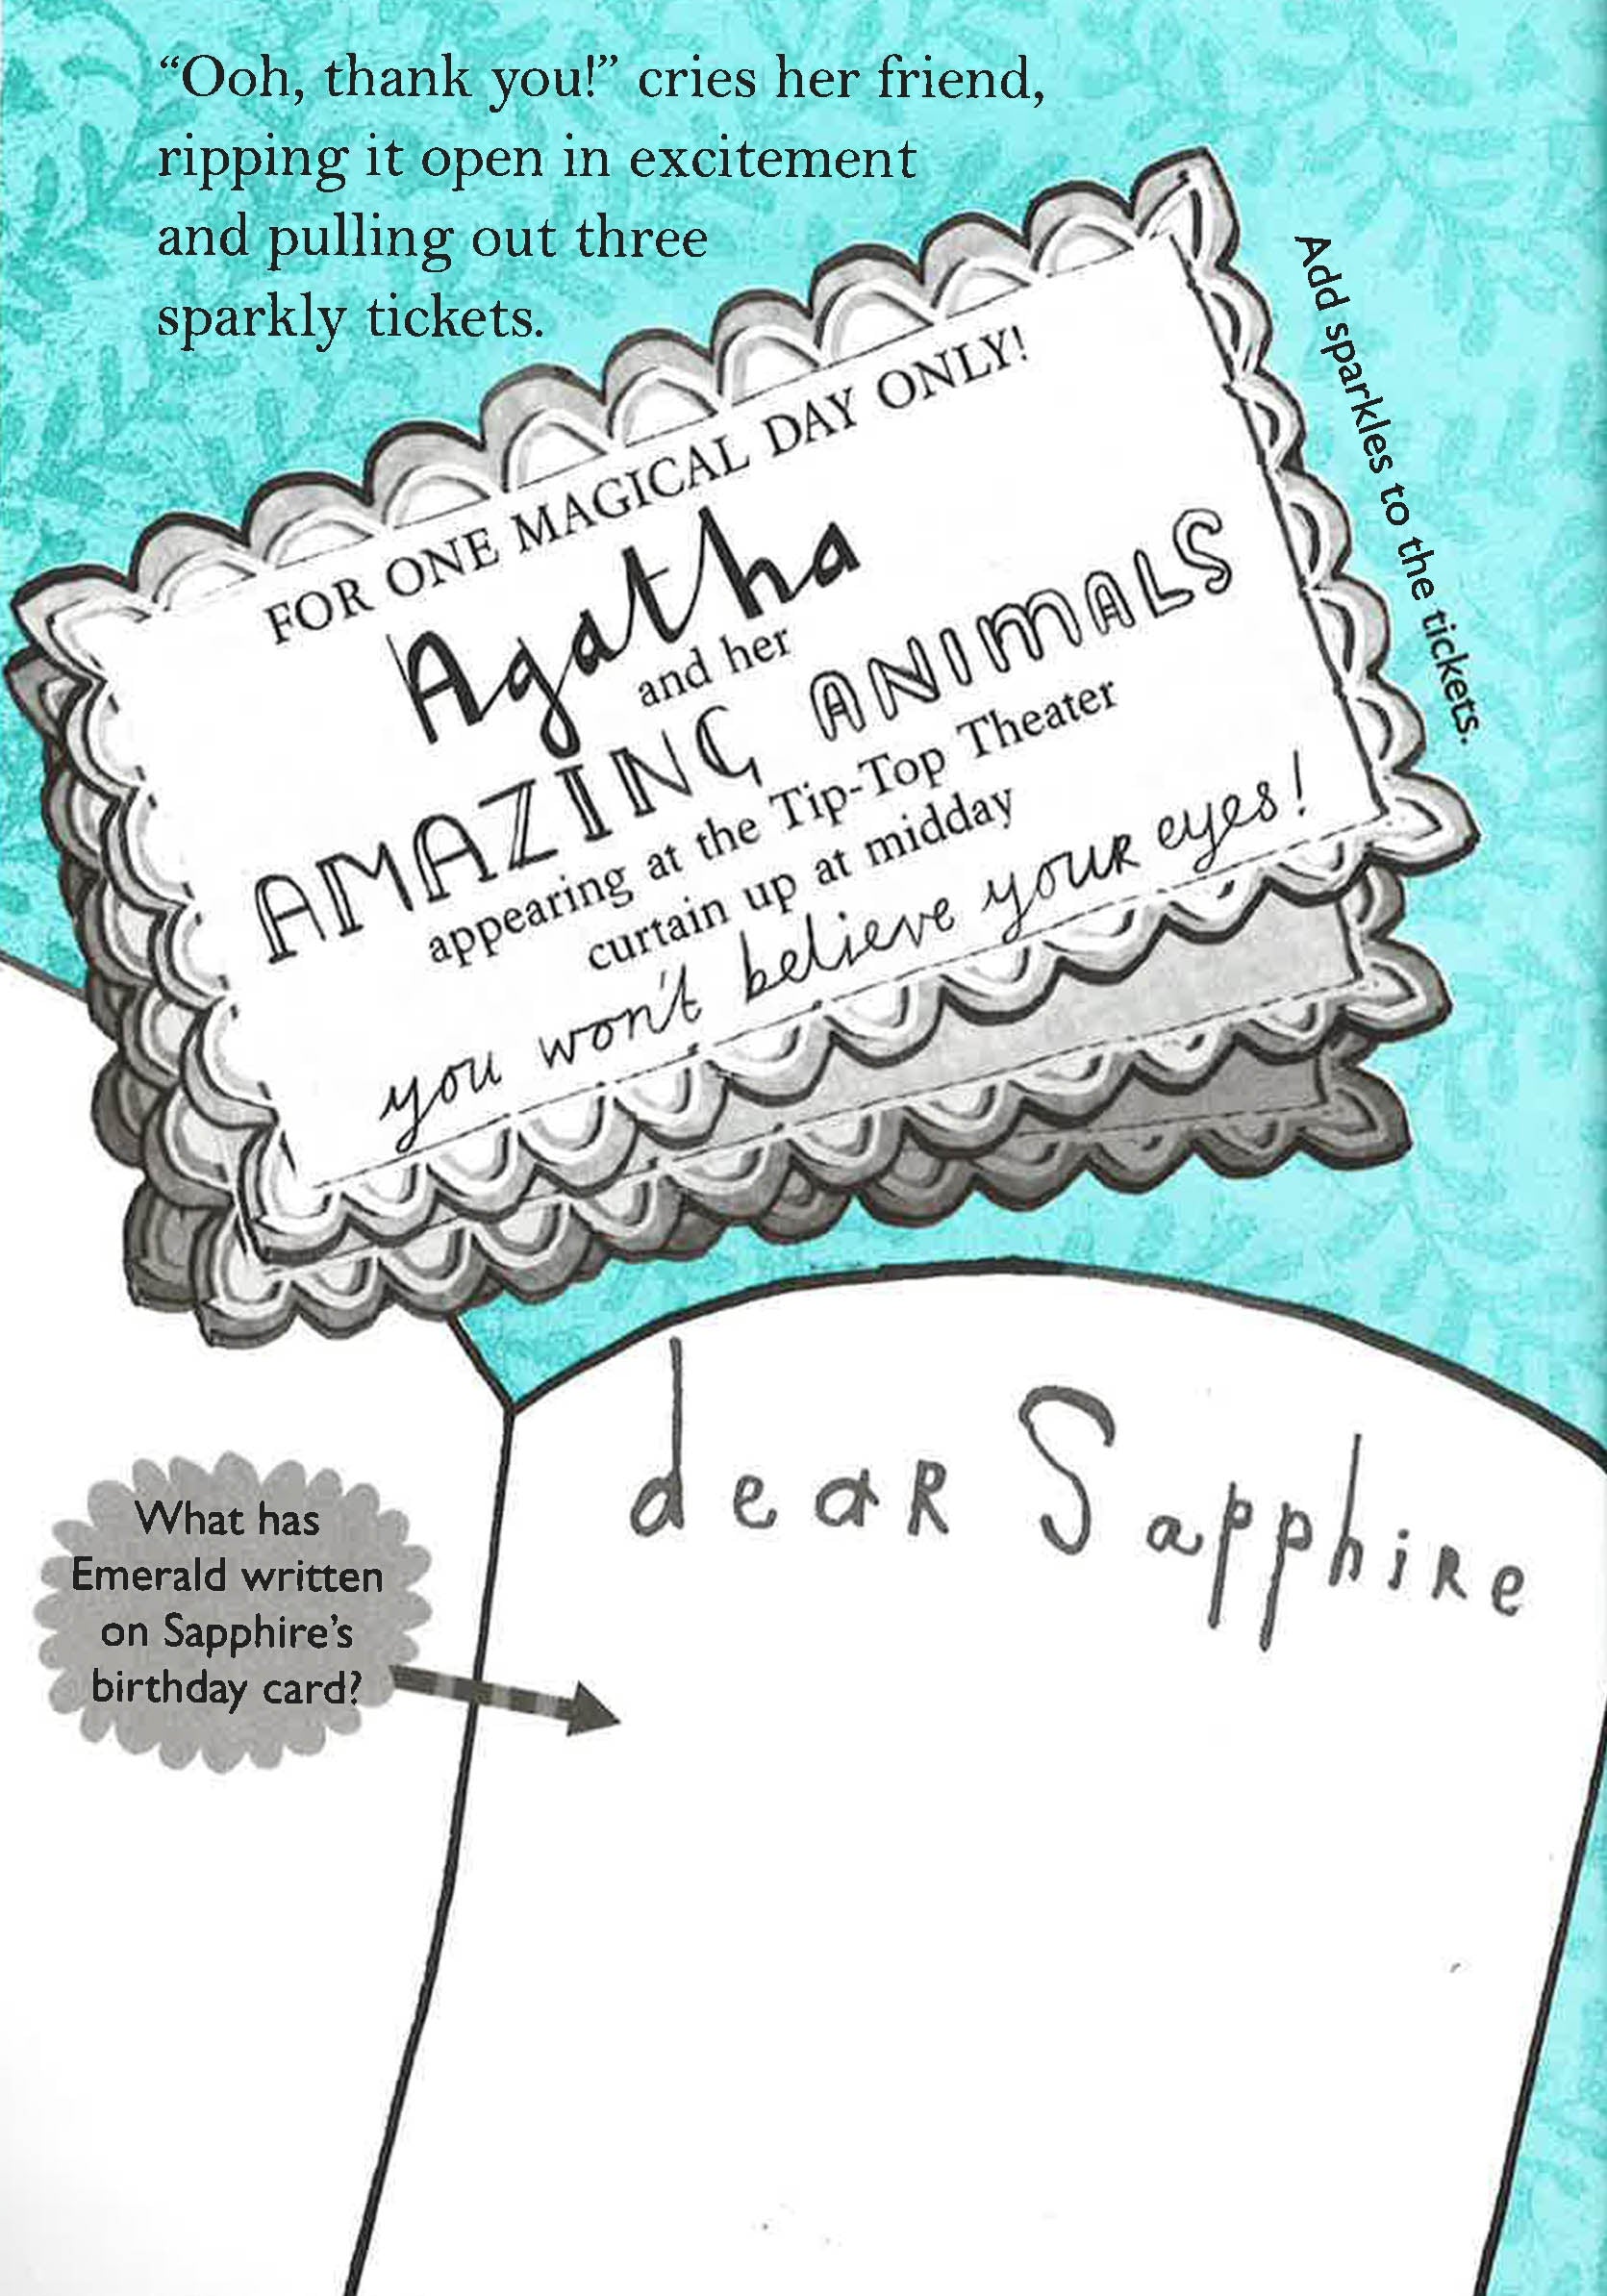 “Ooh, thank you!” cries her friend,
ripping it open in excitement
and pulling out three
sparkly tickets.
Add sparkles to the tickets.
FOR ONE MAGICAL DAY ONLY!
Agatha
and her
AMAZING ANIMALS
appearing at the Tip-Top Theater
curtain up at midday
you won't believe your eyes!
dear Sapphire
What has
Emerald written
on Sapphire’s
birthday card?